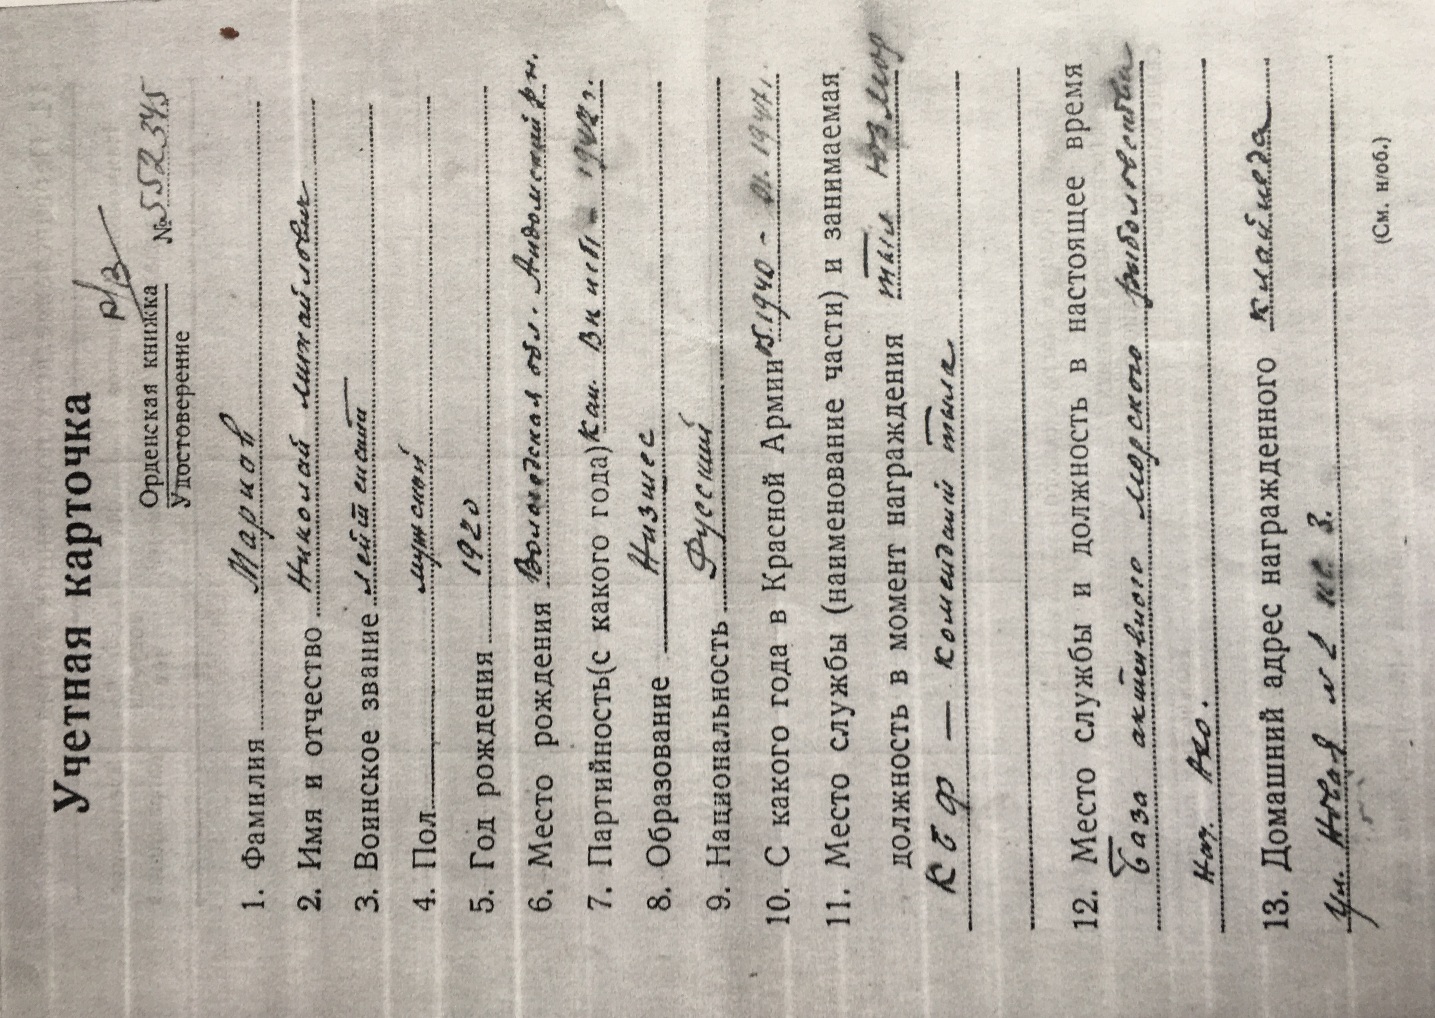 Учетная карточка
Р/В
Орденская книжка №552345
Удостоверение
1. Фамилия Марков
2. Имя и отчество Николай Михайлович
3. Воинское звание лейтенант
4. Пол мужской
5. Год рождения 1920
6. Место рождения Вологодская обл. Андомский рн.
7. Партийность(с какого года) Кан. ВКП(б) - 1942 г.
8. Образование Низшее
9. Национальность Русский
10. С какого года в Красной Армии 05.1940 - 01.1947 г.
11. Место службы (наименование части) и занимаемая
должность в момент награждения тыл
КБФ — комендант тыла
12. Место службы и должность в настоящее время
База активного морского рыболовства
нач. АХО.
13. Домашний адрес награжденного Клайпеда
ул. Новая № 2 кв. 3.
(См. н/об.)